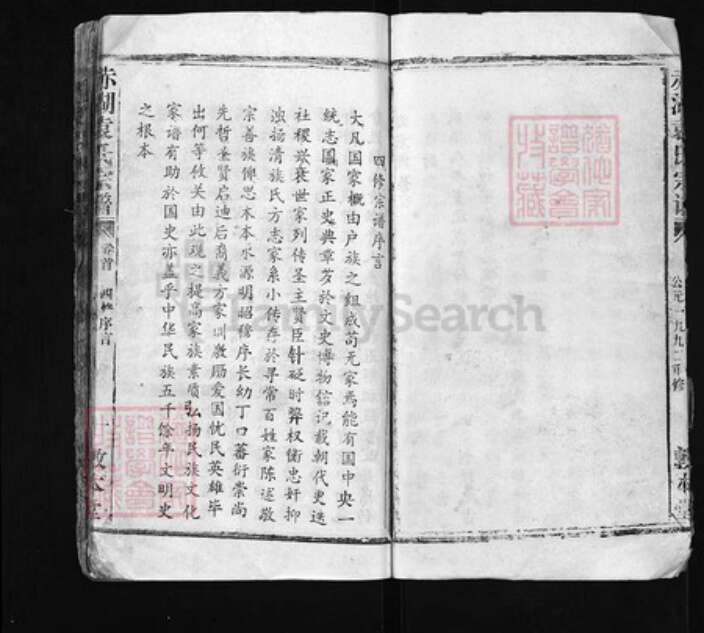 公元一九九二重修
四修宗谱序言
大凡国家概由户族之组成苟无家焉能有国中央一
统志国家正史典章芗於文史博物信记载朝代更迭
社稷兴衰世家列传圣主贤臣针砭时弊权衡忠奸抑
浊扬清族氏方志家系小传存於寻常百姓家陈述敬
宗善族俾思木本水源明昭穆序长幼丁口蕃衍崇尚
先哲垂贤启迪后裔义方家训教赐爱国忧民英雄毕
出何等攸关由此观之提高家族素质弘扬民族文化
家谱有助於国史亦盖乎中华民族五千馀年文明史
之根本
赤湖袁氏宗譜
卷首
四修序言
一
敦本堂
FamilySearch